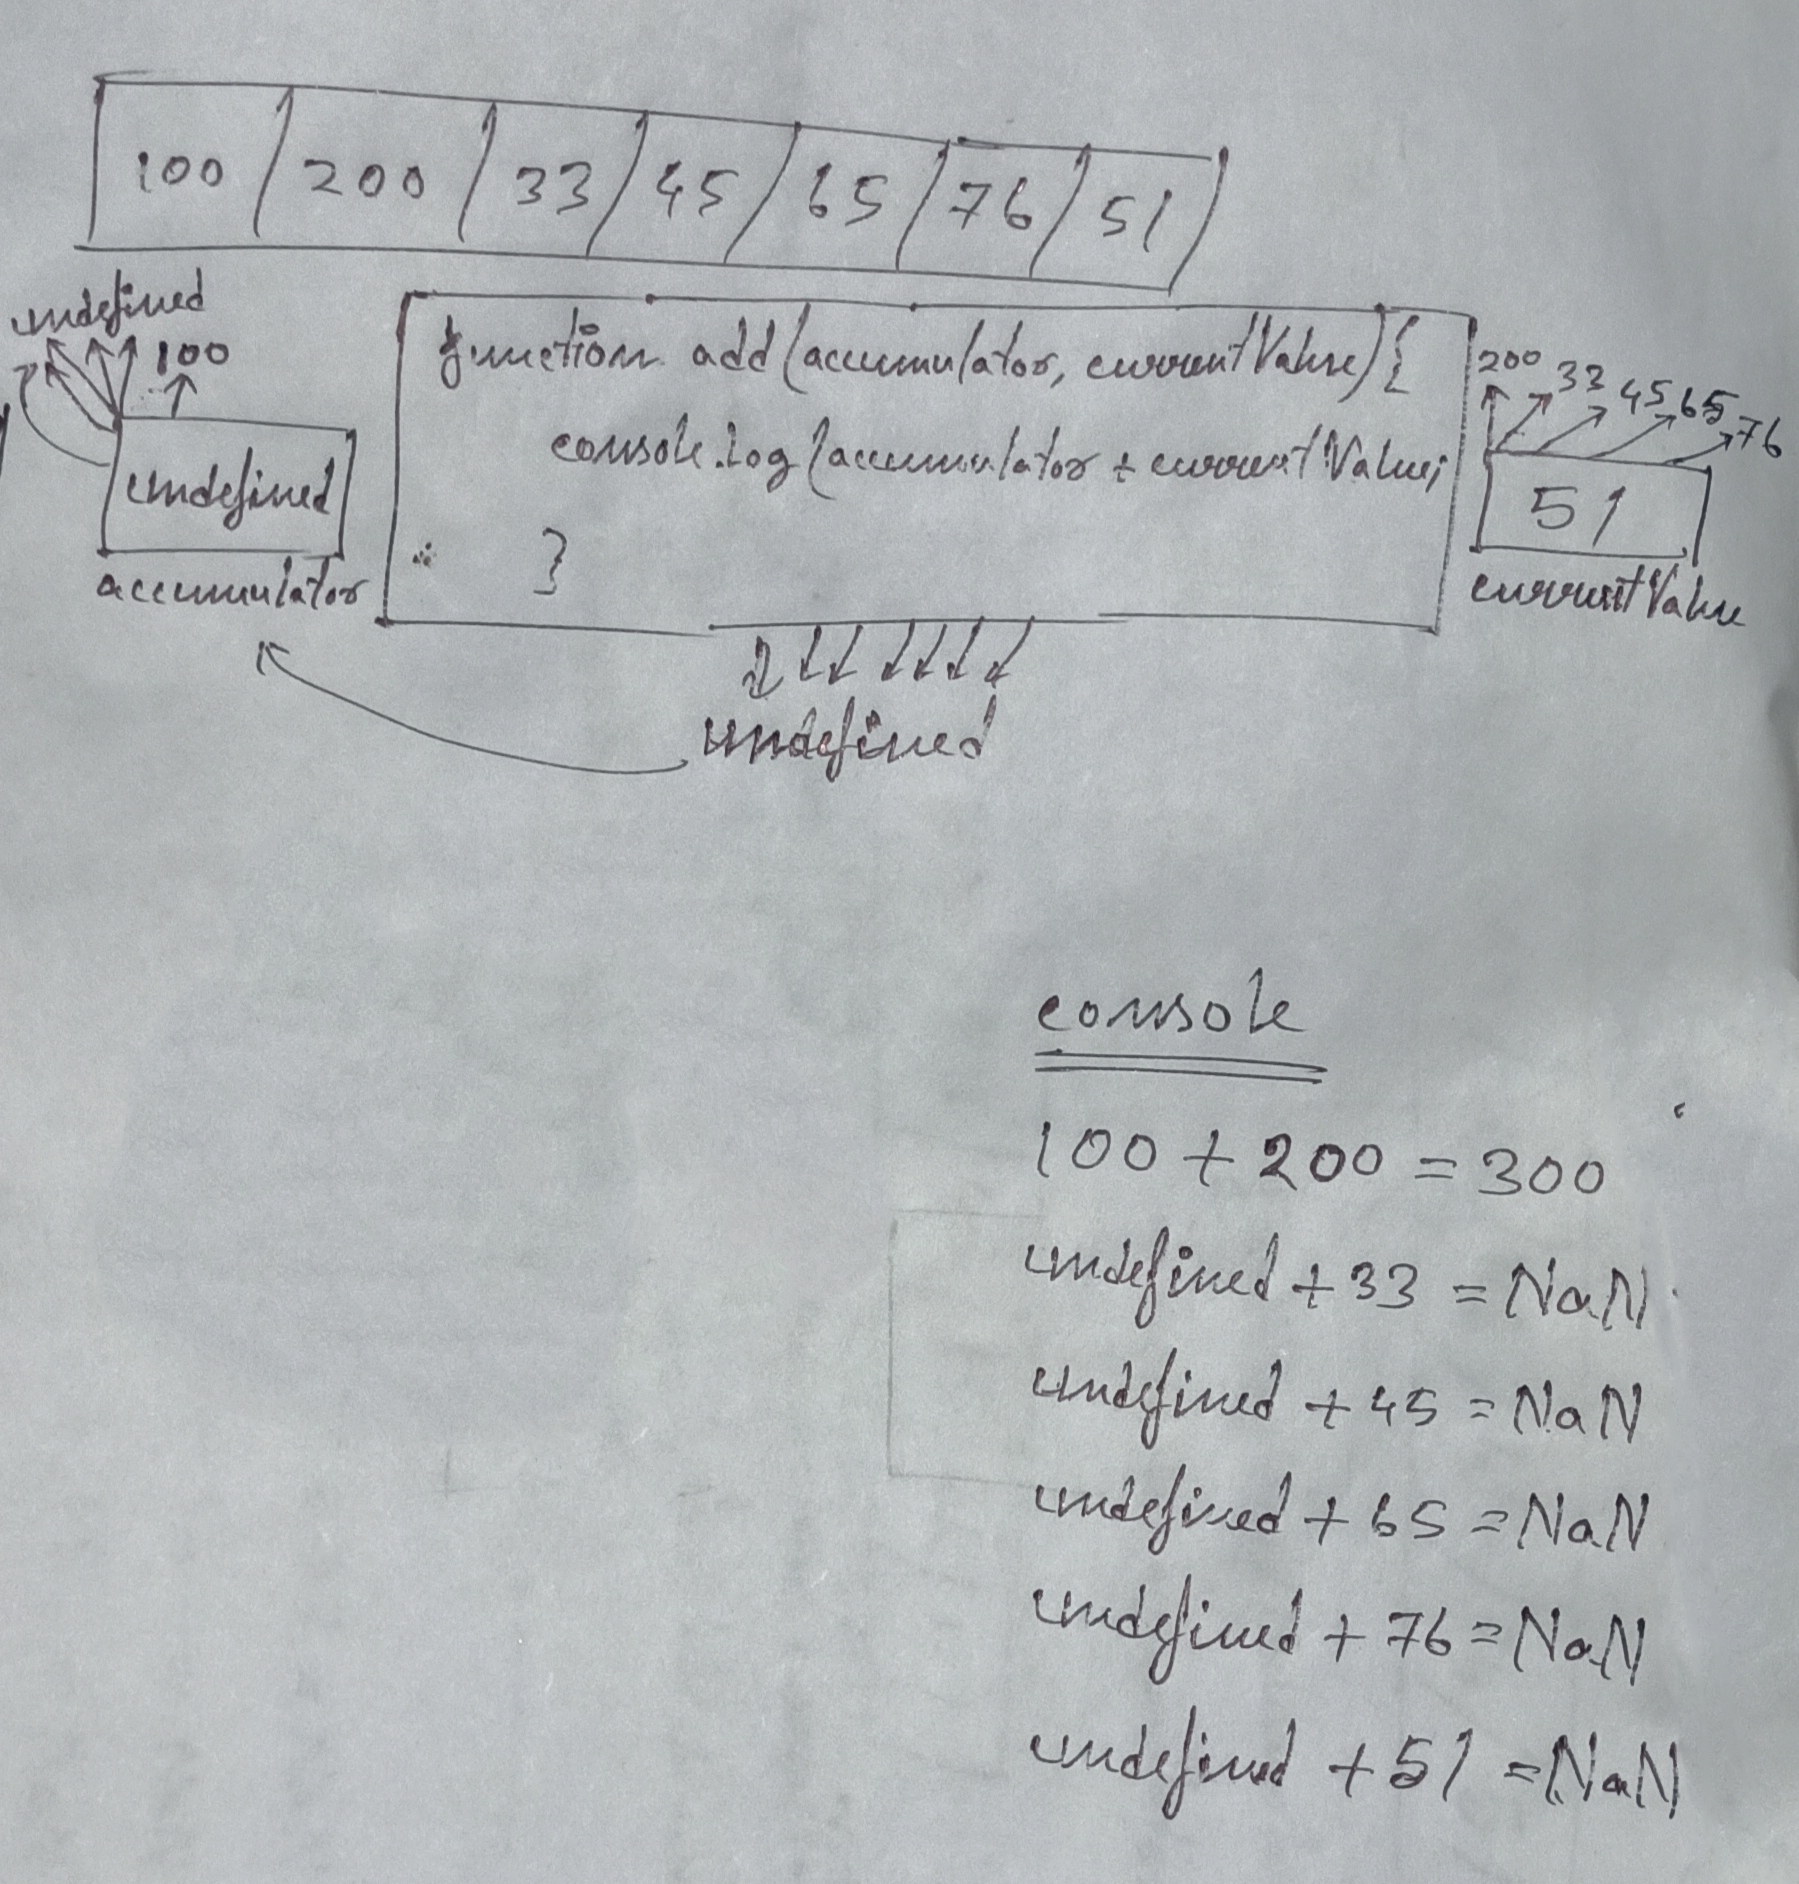 100 200 33 45 65 76 51
undefined
100
undefined
accumulator
function add(accumulator, currentValue){
console.log(accumulator + currentValue;
}
200 33 45 65 76
51
currentValue
undefined
console
100 + 200 = 300
undefined + 33 = NaN
undefined + 45 = NaN
undefined + 65 = NaN
undefined + 76 = NaN
undefined + 51 = NaN